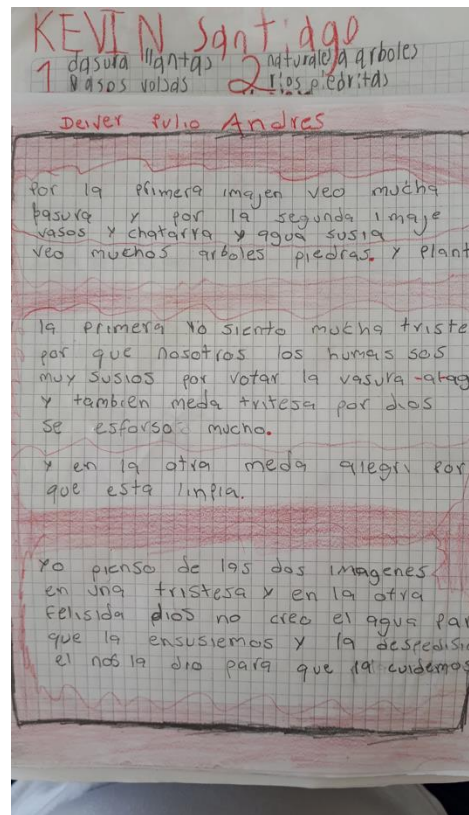 KEVIN Santiago
1 dasura llantas 2 naturaleza arboles
Basos volsas rios piedritas
Deiver Julio Andres
Por la primera imajen veo mucha
basura y por la segunda imaje
vasos y chatarra y agua susia
veo muchos arboles piedras. y plant
la primera yo siento mucha triste
por que nosotros los humais sos
muy susios por votar la vasura -alag
y tambien meda tritesa por dios
se esforso mucho.
y en la otra meda alegri por
que esta linpia.
Yo pienso de las dos imagenes
en una tristesa y en la otra
felisida dios no creo el agua Par
que la ensusiemos y la despedisi
el nos la dio para que la cuidemos